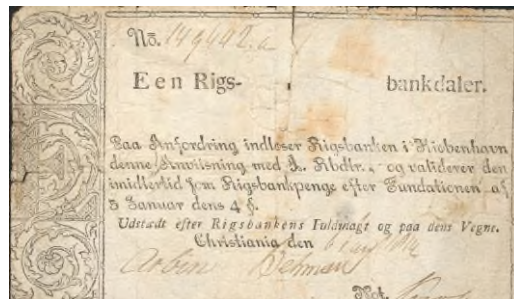 No. 149442.a
Een Rigs- bankdaler.
Paa Anfordring indløser Rigsbanken i Kiøbenhavn
denne Anviisning med 1. Rbdlr., og validerer den
imidlertid som Rigsbankpenge efter Fundationen af
5 Januar dens 4 §.
Udstædt efter Rigsbankens Fuldmagt og paa dens Vegne.
Christiania den
Not.